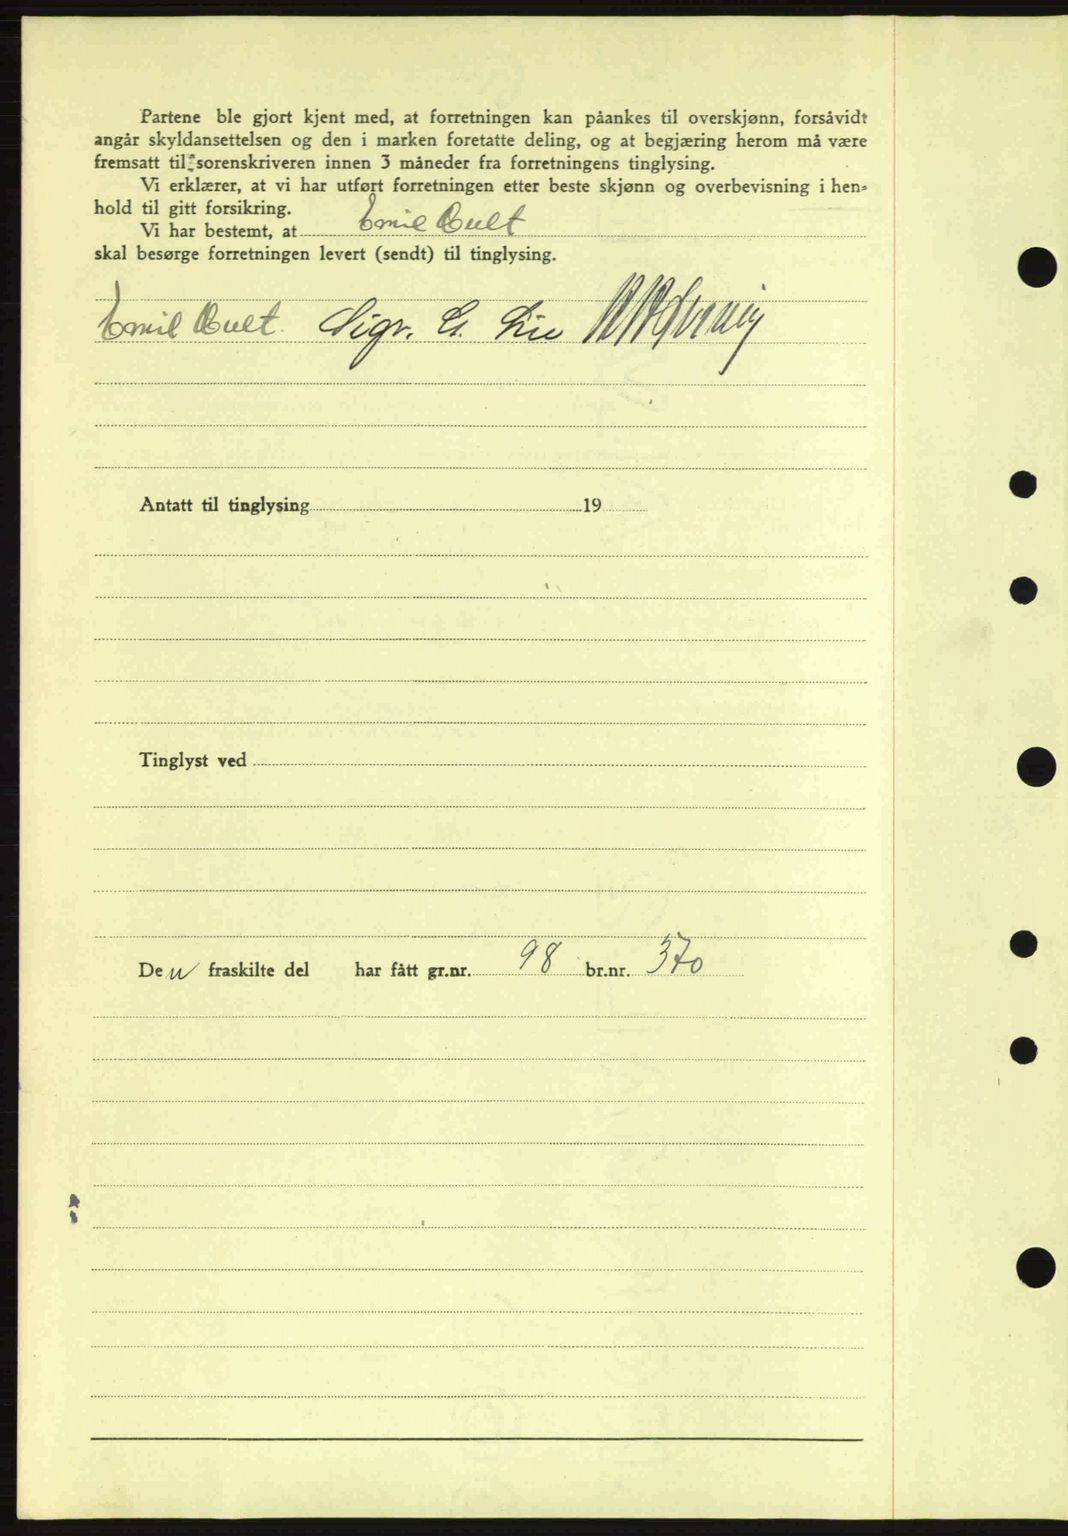 Partene ble gjort kjent med, at forretningen kan påankes til overskjønn, forsåvidt
angår skyldansettelsen og den i marken foretatte deling, og at begjæring herom må være
fremsatt til sorenskriveren innen 3 måneder fra forretningens tinglysing.
Vi erklærer, at vi har utført forretningen etter beste skjønn og overbevisning i hen-
hold til gitt forsikring.
Vi har bestemt, at Emil Oult
skal besørge forretningen levert (sendt) til tinglysing.
Emil Oult. Sigv. G. Lie
Antatt til tinglysing 19
Tinglyst ved
Den fraskilte del har fått gr.nr. 98 br.nr. 370